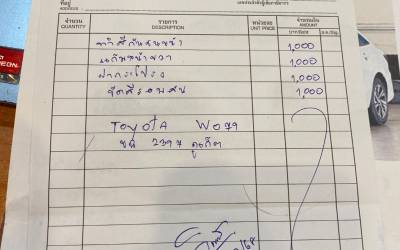 ที่อยู่
ADDRESS
เลขประจำตัวผู้เสียภาษีอากร
จำนวน
QUANTITY
รายการ
DESCRIPTION
หน่วยละ
UNIT PRICE
จำนวนเงิน
AMOUNT
ทำสีกันชนหน้า 1,000
แก้มหน้าขวา 1,000
ฝากระโปรง 1,000
1,000
TOYOTA
ขน 2397 ภูเก็ต